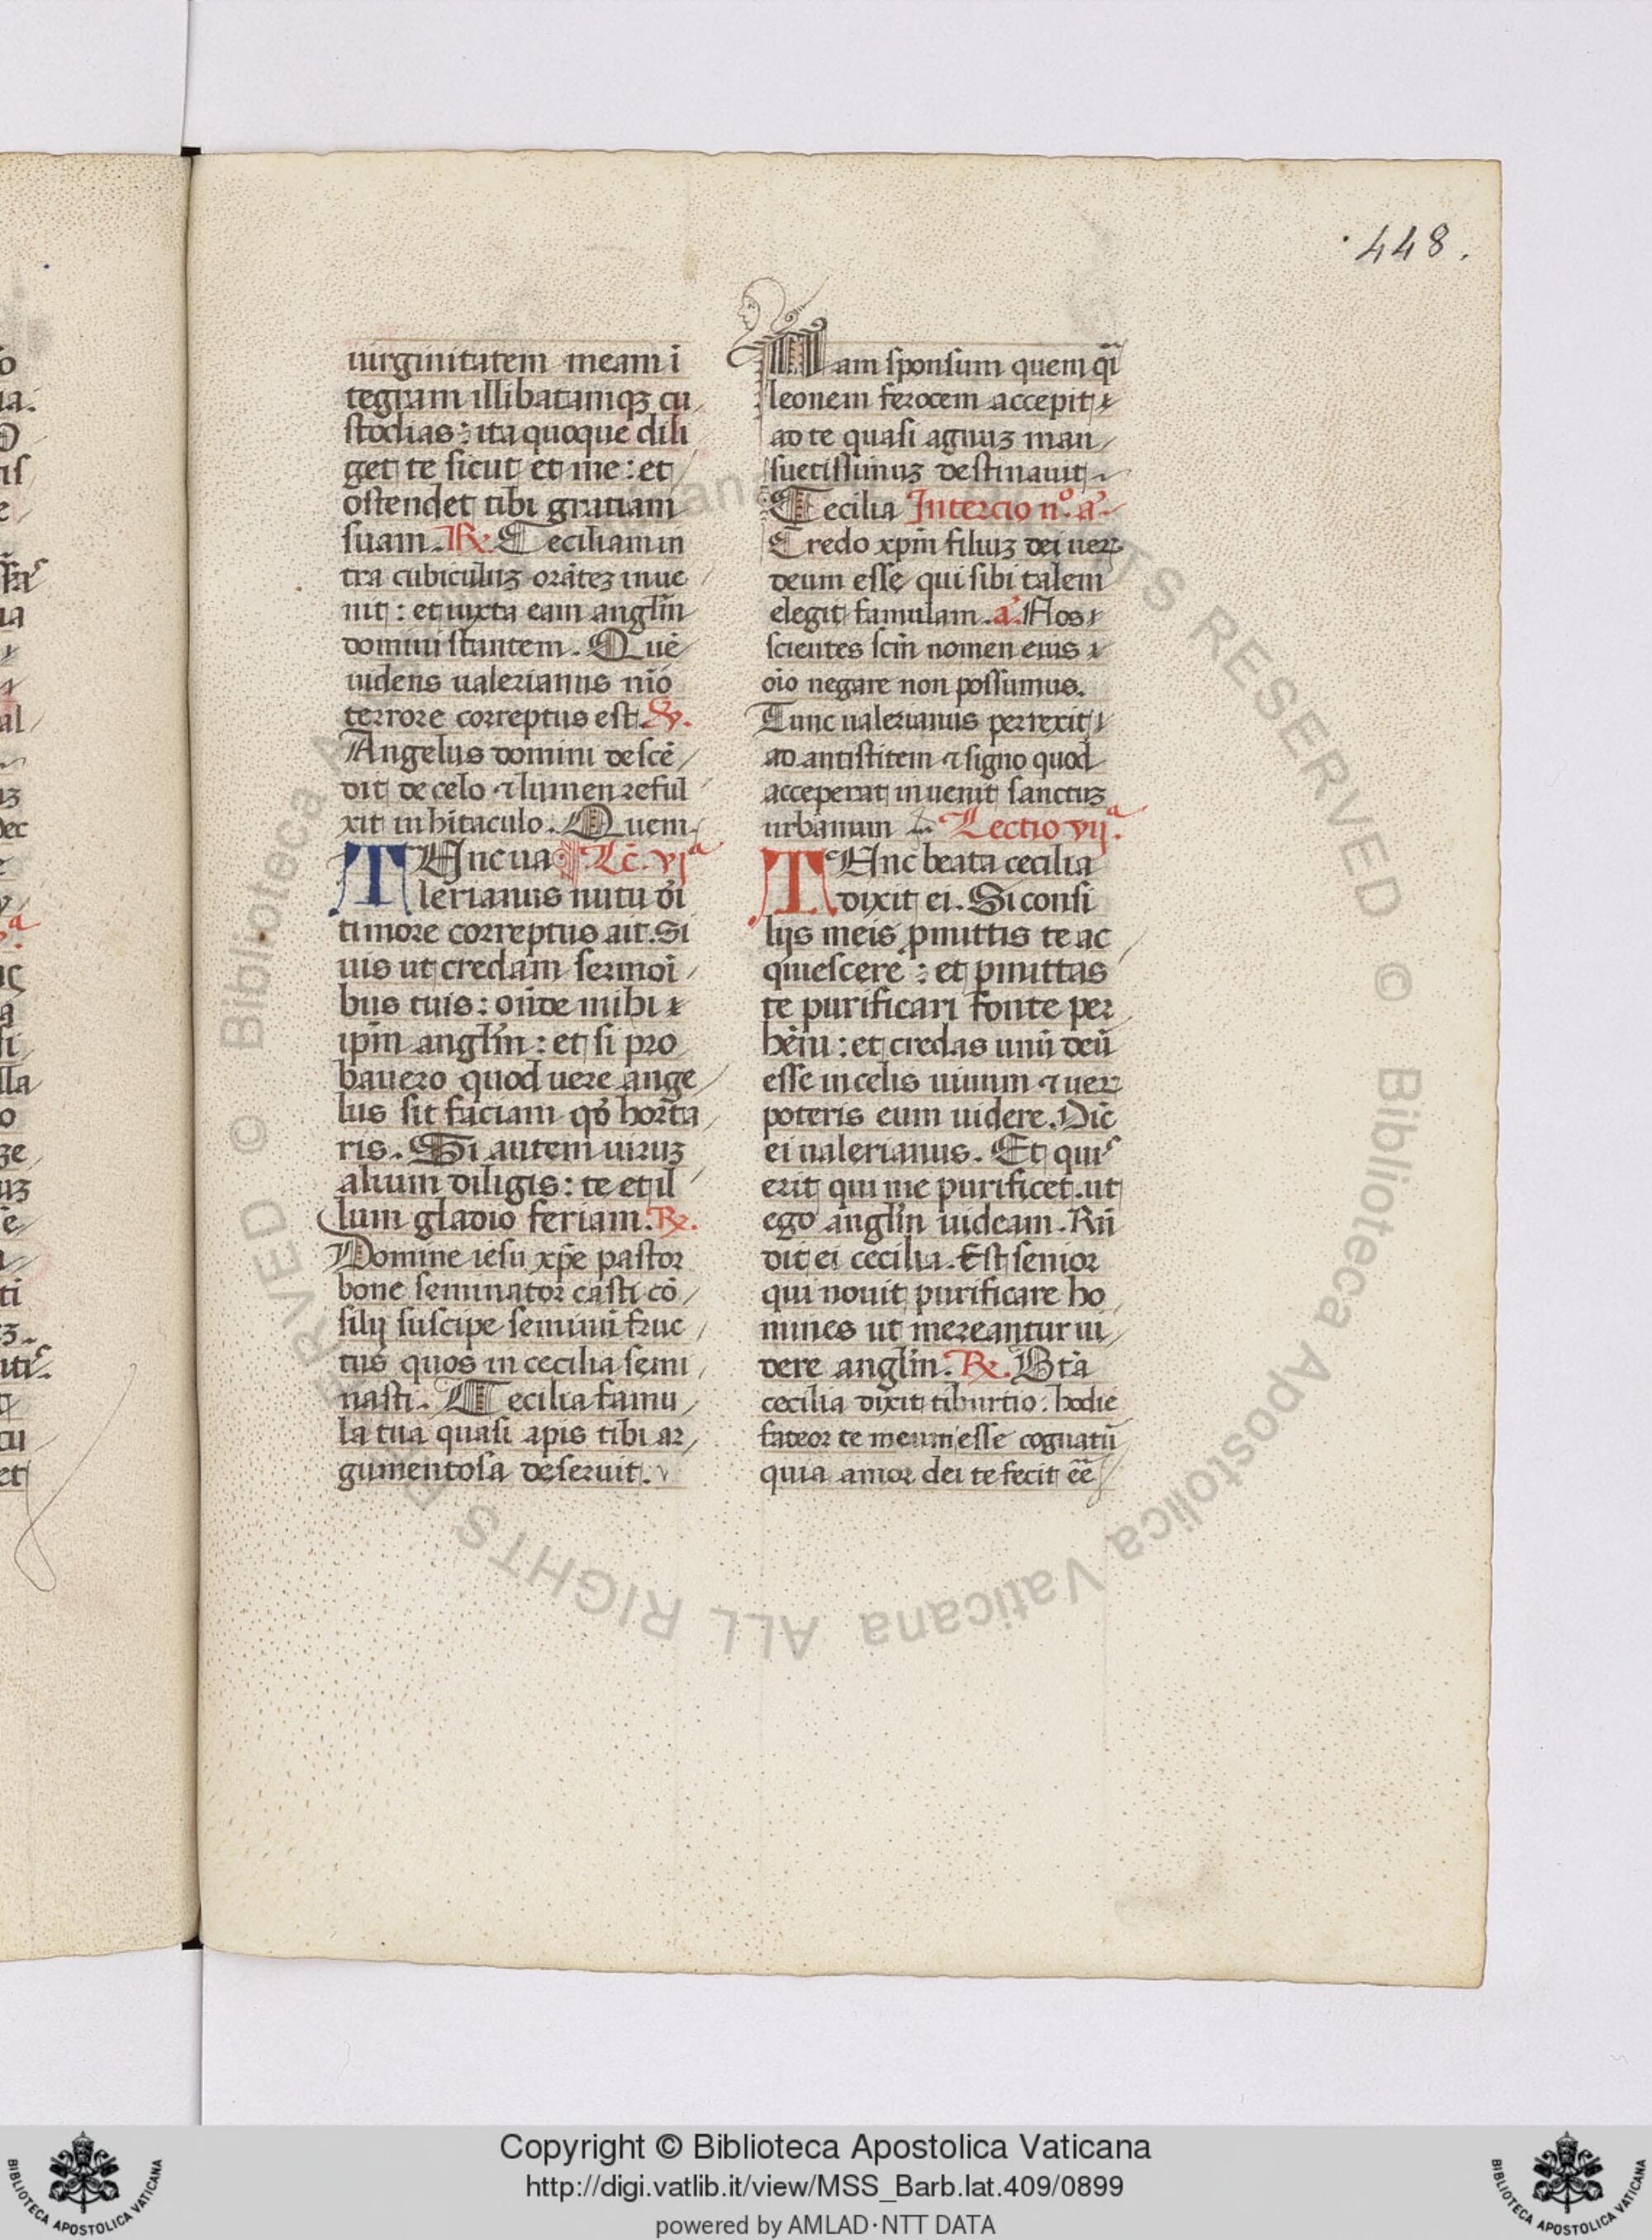 .448.
uirginitatem meam ī
tegram illibatamqꝫ cu
stodias : ita quoque dili
get te sicut et me : et
ostendet tibi gratiam
suam. ℟. Ceciliam in
tra cubiculuꝫ orāteꝫ inue
nit : et iuxta eam angl̄m
domini stantem. Quē
uidens ualerianus nīo
terrore correptus est. ℣.
Angelus domini descē
dit de celo ⁊ lumen reful
xit in hītaculo. Quem
TUnc ua Lc̄. vjᵃ
lerianus nutu dī
timore correptus ait. Si
uis ut credam sermoī
bus tuis : on̄de mihi
ip̄m angl̄m : et si pro
bauero quod uere ange
lus sit faciam qd̄ horta
ris. Si autem uiruꝫ
alium diligis : te et il
lum gladio feriam. ℟.
Domine iesu xp̄e pastor
bone seminator casti cō
silij suscipe seminū fruc
tus quos in cecilia semi
nasti. Cecilia famu
la tua quasi apis tibi ar
gumentosa deseruit.
Nam sponsum quem q̄i
leonem ferocem accepit
ad te quasi agnuꝫ man
suetissimuꝫ destinauit
Cecilia Intercio nº. aᵃ.
Credo xp̄m filiuꝫ dei uer
deum esse qui sibi talem
elegit famulam. aᵃ. Nos
scientes sc̄m nomen eius
oīo negare non possumus.
Tunc ualerianus perrexit
ad antistitem ⁊ signo quod
acceperat inuenit sanctuꝫ
urbanum Lectio vijᵃ.
TUnc beata cecilia
dixit ei. Si consi
lijs meis ꝓmittis te ac
quiescere : et ꝑmittas
te purificari fonte per
hēm̄ : et credas unū deū
esse in celis uiuum ⁊ uer
poteris eum uidere. Dic̄
ei ualerianus. Et quiˢ
erit qui me purificet. ut
ego angl̄m uideam. Rn̄
dit ei cecilia. Est senior
qui nouit purificare ho
mines ut mereantur ui
dere angl̄m. ℟. Btā
cecilia dixit tiburtio. hodie
fateor te meum esse cognatū
quia amor dei te fecit eē
Copyright © Biblioteca Apostolica Vaticana
http://digi.vatlib.it/view/MSS_Barb.lat.409/0899
powered by AMLAD·NTT DATA
BIBLIOTECA APOSTOLICA VATICANA
BIBLIOTECA APOSTOLICA VATICANA
© Biblioteca Apostolica Vaticana ALL RIGHTS RESERVED